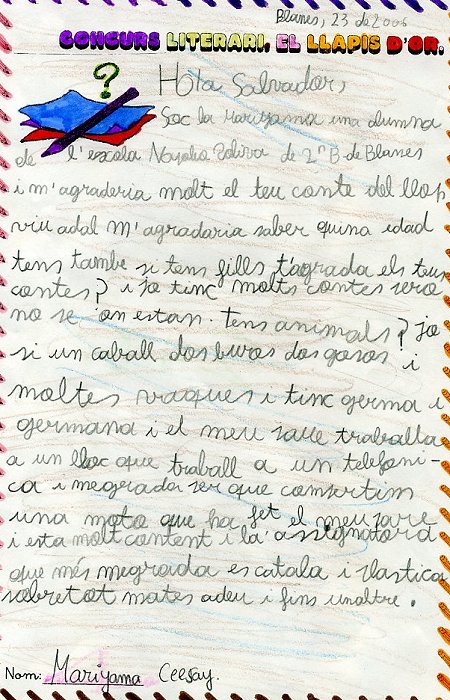 Blanes, 23 de 2006
CONCURS LITERARI, EL LLAPIS D'OR.
?
Hola Salvador,
Soc la Mariyama una alumna
de l'escola Napbia Soliva de 2n B de Blanes
i m'agraderia molt el teu conte del llop
viu adal m'agradaria saber quina edad
tens tambe si tens fills, t'agrada els teus
contes? i jo tinc molts contes pero
no se on estan. tens animals? Jo
si un caball dos buros dos gosos i
moltes vaques i tinc germa i
germana i el meu pare traballa
a un lloc que traball a un telefoni-
ca i megrada per que compartim
una moto que ha fet el meu pare
i esta molt content i la assignatora
que més megrada es catala i plastica
sobretot mates adeu i fins unaltre.
Nom: Mariyama Ceesay.